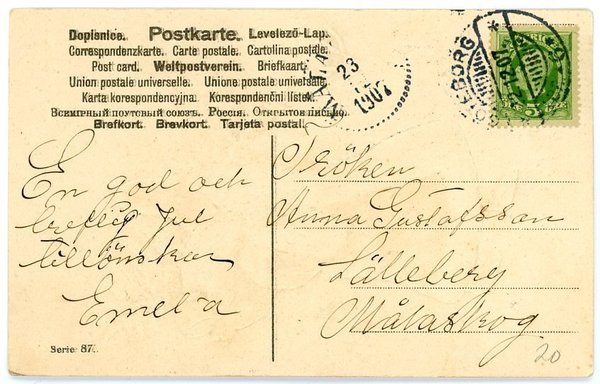 Dopisnice. Postkarte. Levelező-Lap.
Correspondenzkarte. Carte postale. Cartolina postale.
Post card. Weltpostverein. Briefkaart.
Union postale universelle. Unione postale universale.
Karta korespondencyjna. Korespondenční lístek.
Всемірный почтовый союзъ. Россія. Открытое письмо.
Brefkort. Brevkort. Tarjeta postal.
23
12
1907
BORG
En god och
treflig Jul
tillönskar
Emelia
Fröken
Anna Gustafsson
Lälleberg
Målaskog
Serie 87.
20